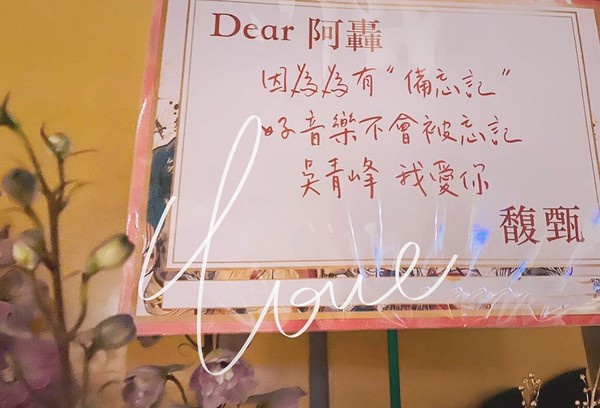 Dear 阿轟
因為為有"備忘記"
好音樂不會被忘記
吳青峰 我愛你
馥甄
Love